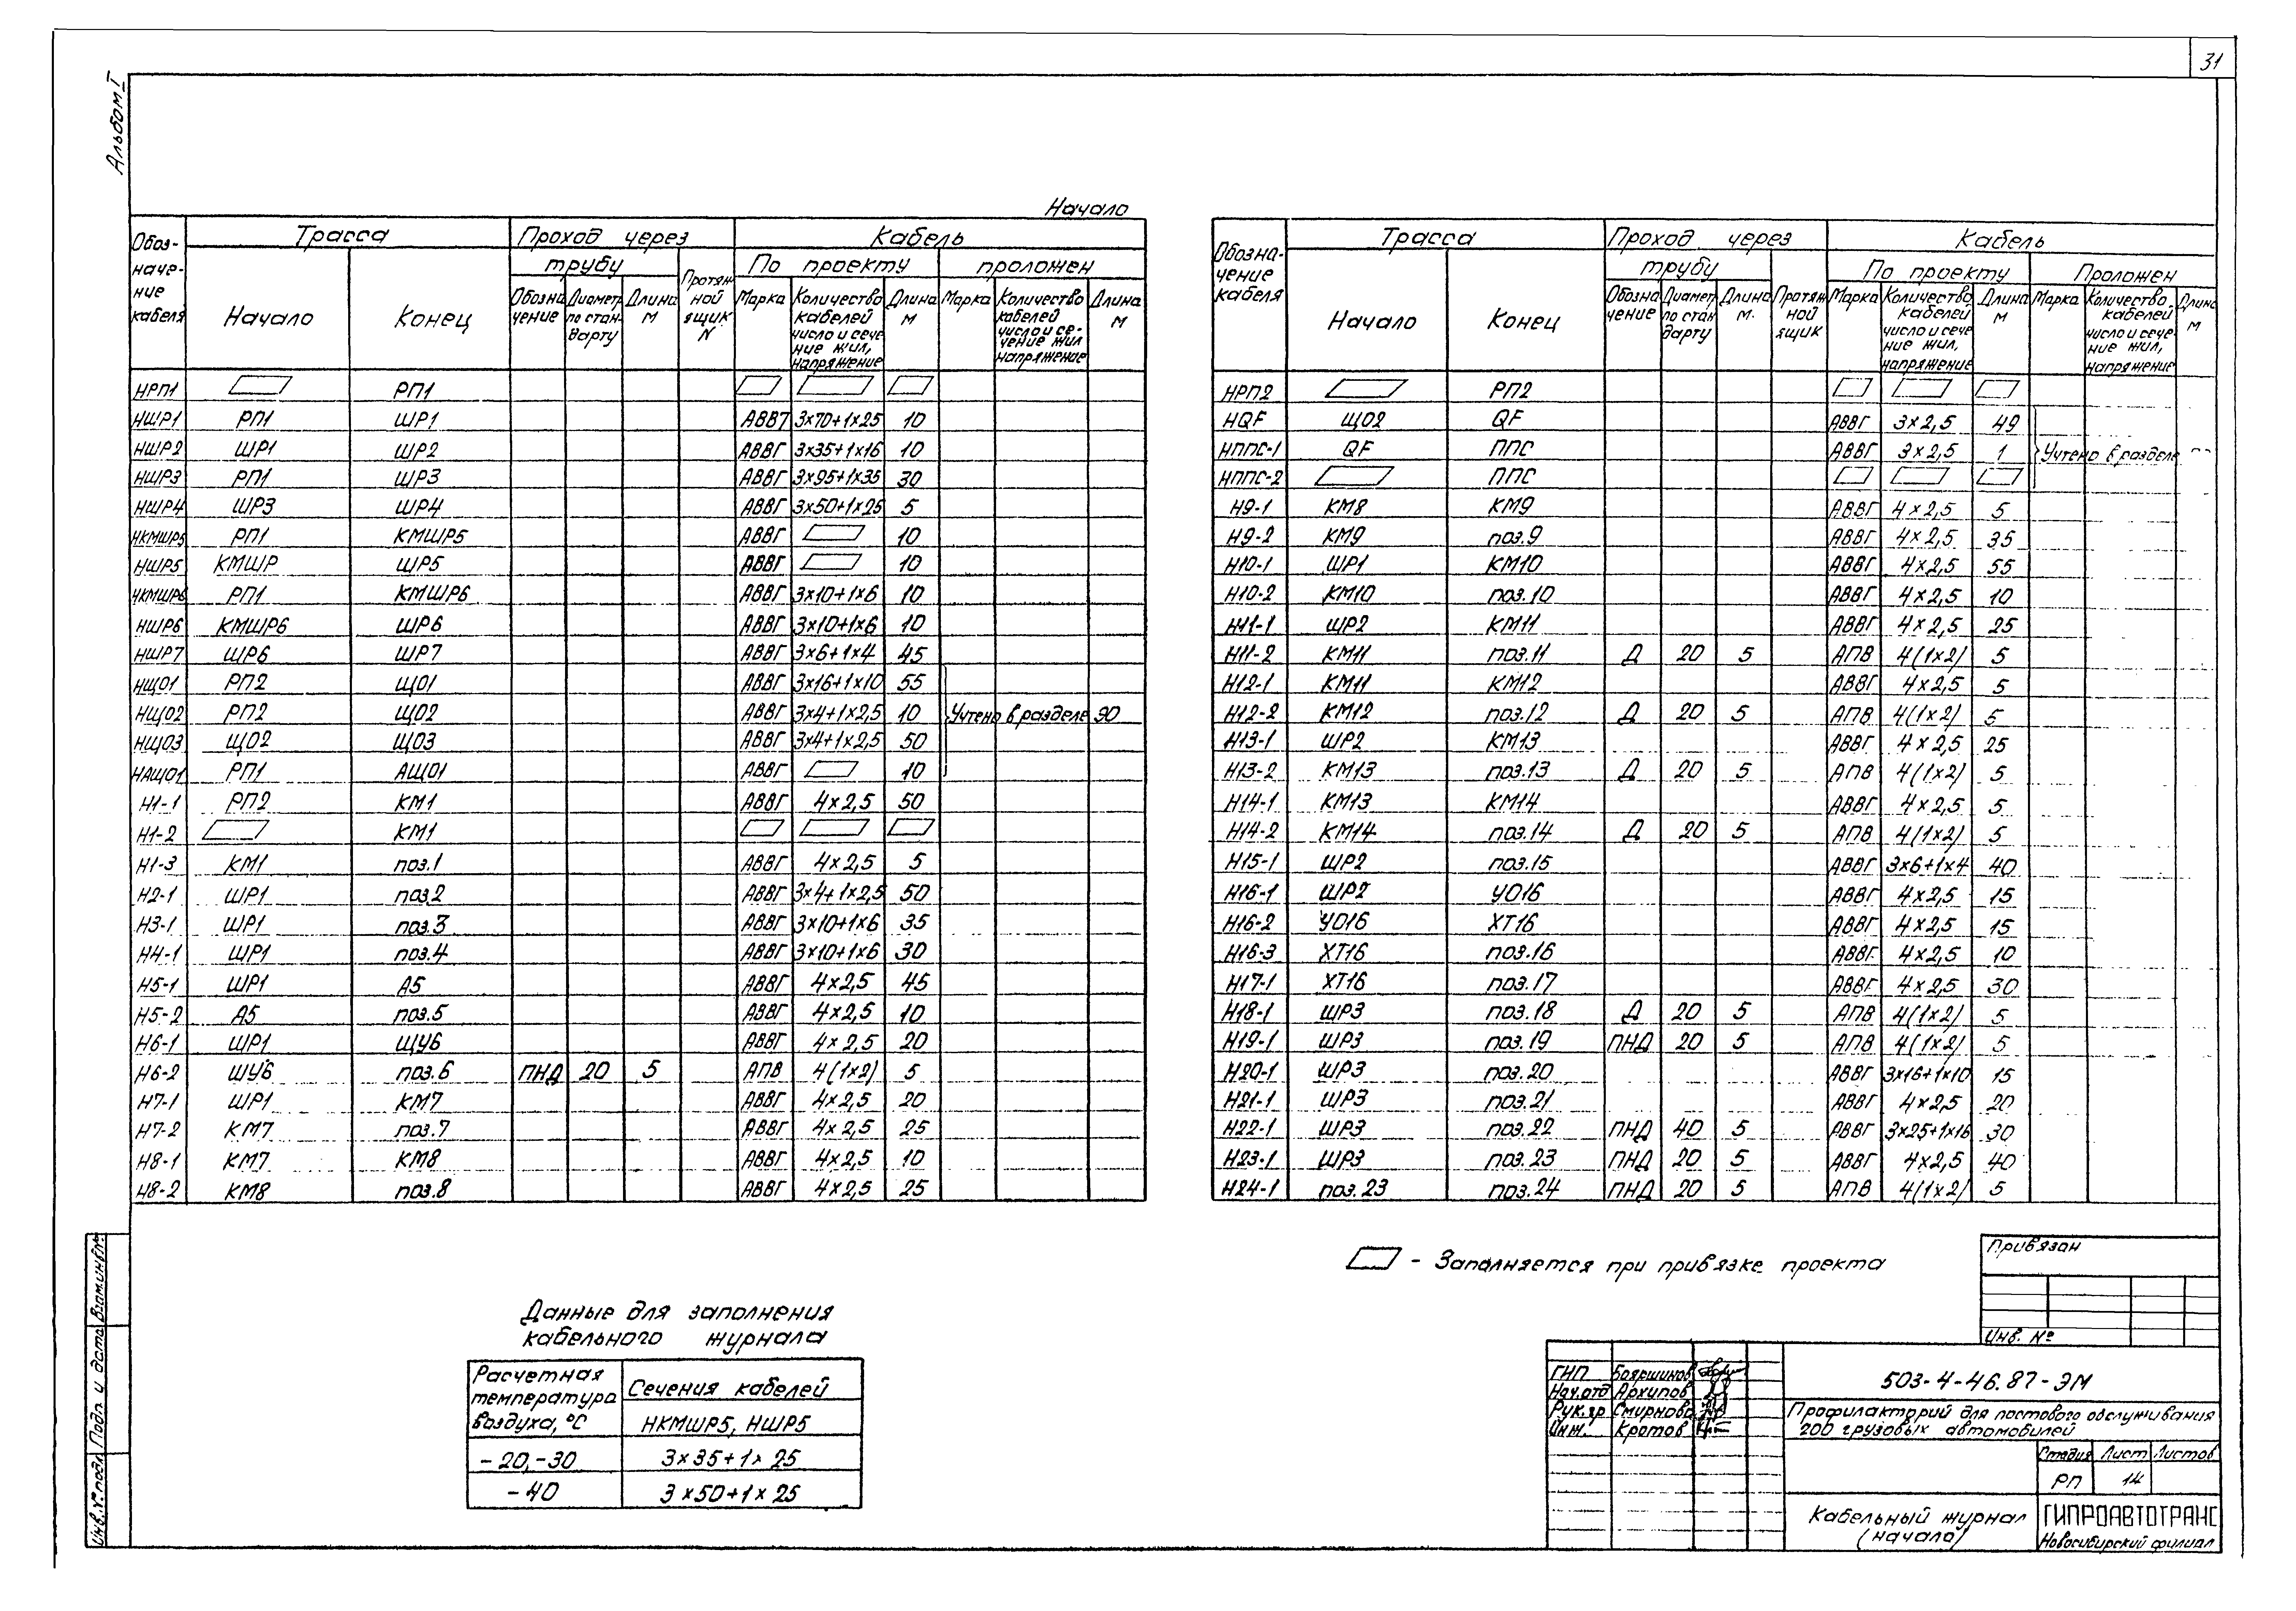 31
Альбом I
Начало
Обоз-наче-ние кабеля | Трасса | Проход через | Кабель
трубу | Протяж ной ящик N | По проекту | проложен
Начало | Конец | Обозна чение | Диаметр по стан дарту | Длина м | Марка | Количество кабелей число и сече ние жил, напряжение | Длина м | Марка | Количество кабелей число и се-чение жил напряжение | Длина м
НРП1 РП1
НШР1 РП1 ШР1 АВВГ 3×70+1×25 10
НШР2 ШР1 ШР2 АВВГ 3×35+1×16 10
НШР3 РП1 ШР3 АВВГ 3×95+1×35 30
НШР4 ШР3 ШР4 АВВГ 3×50+1×25 5
НКМШР5 РП1 КМШР5 АВВГ 10
НШР5 КМШР ШР5 АВВГ 10
НКМШР6 РП1 КМШР6 АВВГ 3×10+1×6 10
НШР6 КМШР6 ШР6 АВВГ 3×10+1×6 10
НШР7 ШР6 ШР7 АВВГ 3×6+1×4 45
НЩО1 РП2 ЩО1 АВВГ 3×16+1×10 55
НЩО2 РП2 ЩО2 АВВГ 3×4+1×2,5 10 Учтено в разделе ЭО
НЩО3 ЩО2 ЩО3 АВВГ 3×4+1×2,5 50
НАЩО1 РП1 АЩО1 АВВГ 10
Н1-1 РП2 КМ1 АВВГ 4×2,5 50
Н1-2 КМ1
Н1-3 КМ1 поз.1 АВВГ 4×2,5 5
Н2-1 ШР1 поз.2 АВВГ 3×4+1×2,5 50
Н3-1 ШР1 поз.3 АВВГ 3×10+1×6 35
Н4-1 ШР1 поз.4 АВВГ 3×10+1×6 30
Н5-1 ШР1 А5 АВВГ 4×2,5 45
Н5-2 А5 поз.5 АВВГ 4×2,5 10
Н6-1 ШР1 ЩУ6 АВВГ 4×2,5 20
Н6-2 ШУ6 поз.6 ПНД 20 5 АПВ 4(1×2) 5
Н7-1 ШР1 КМ7 АВВГ 4×2,5 20
Н7-2 КМ7 поз.7 АВВГ 4×2,5 25
Н8-1 КМ7 КМ8 АВВГ 4×2,5 10
Н8-2 КМ8 поз.8 АВВГ 4×2,5 25
Обозна-чение кабеля | Трасса | Проход через | Кабель
трубу | Протяж ной ящик | По проекту | Проложен
Начало | Конец | Обозна чение | Диаметр по стан дарту | Длина м. | Марка | Количество кабелей число и сече ние жил, напряжение | Длина м | Марка | Количество кабелей число и сече-ние жил, напряжение | Длина м
НРП2 РП2
НQF ЩО2 QF АВВГ 3×2,5 49
НППС-1 QF ППС АВВГ 3×2,5 1 Учтено в разделе
НППС-2 ППС
Н9-1 КМ8 КМ9 АВВГ 4×2,5 5
Н9-2 КМ9 поз.9 АВВГ 4×2,5 35
Н10-1 ШР1 КМ10 АВВГ 4×2,5 55
Н10-2 КМ10 поз.10 АВВГ 4×2,5 10
Н11-1 ШР2 КМ11 АВВГ 4×2,5 25
Н11-2 КМ11 поз.11 Д 20 5 АПВ 4(1×2) 5
Н12-1 КМ11 КМ12 АВВГ 4×2,5 5
Н12-2 КМ12 поз.12 Д 20 5 АПВ 4(1×2) 5
Н13-1 ШР2 КМ13 АВВГ 4×2,5 25
Н13-2 КМ13 поз.13 Д 20 5 АПВ 4(1×2) 5
Н14-1 КМ13 КМ14 АВВГ 4×2,5 5
Н14-2 КМ14 поз.14 Д 20 5 АПВ 4(1×2) 5
Н15-1 ШР2 поз.15 АВВГ 3×6+1×4 40
Н16-1 ШР2 УО16 АВВГ 4×2,5 15
Н16-2 УО16 ХТ16 АВВГ 4×2,5 15
Н16-3 ХТ16 поз.16 АВВГ 4×2,5 10
Н17-1 ХТ16 поз.17 АВВГ 4×2,5 30
Н18-1 ШР3 поз.18 Д 20 5 АПВ 4(1×2) 5
Н19-1 ШР3 поз.19 ПНД 20 5 АПВ 4(1×2) 5
Н20-1 ШР3 поз.20 АВВГ 3×16+1×10 15
Н21-1 ШР3 поз.21 АВВГ 4×2,5 20
Н22-1 ШР3 поз.22 ПНД 40 5 АВВГ 3×25+1×16 30
Н23-1 ШР3 поз.23 ПНД 20 5 АВВГ 4×2,5 40
Н24-1 поз.23 поз.24 ПНД 20 5 АПВ 4(1×2) 5
- Заполняется при привязке проекта
Данные для заполнения
кабельного журнала
Расчетная температура воздуха, °С | Сечения кабелей
НКМШР5, НШР5
-20,-30 3×35+1×25
-40 3×50+1×25
Привязан
Инв. №
ГИП Бояршинов
Нач.отд Архипов
Рук.гр Смирнова
Инж. Кротов
503-4-46.87-ЭМ
Профилакторий для постового обслуживания
200 грузовых автомобилей
Стадия Лист Листов
РП 14
Кабельный журнал
(начало)
ГИПРОАВТОТРАНС
Новосибирский филиал
Инв.№ подл. Подп. и дата Взам.инв.№